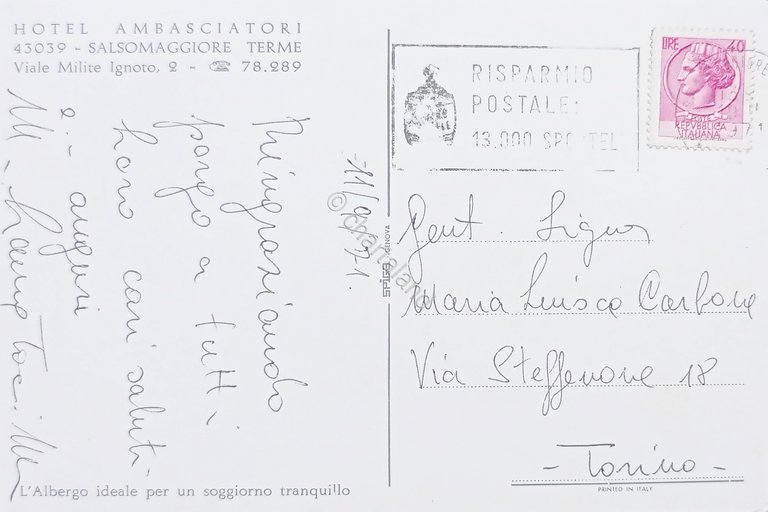 HOTEL AMBASCIATORI
43039 - SALSOMAGGIORE TERME
Viale Milite Ignoto, 2 - ☎ 78.289
-11/9/71.
Ringraziando
porgo a tutti
loro cari saluti
e auguri
L'Albergo ideale per un soggiorno tranquillo
GENOVA
© chartaland
RISPARMIO
POSTALE:
13.000 SPORTEL
LIRE 40
POSTE
REPVBBLICA
ITALIANA
Gent. Signor
Maria Luisa Carbone
Via Steffenone 18
- Torino -
PRINTED IN ITALY